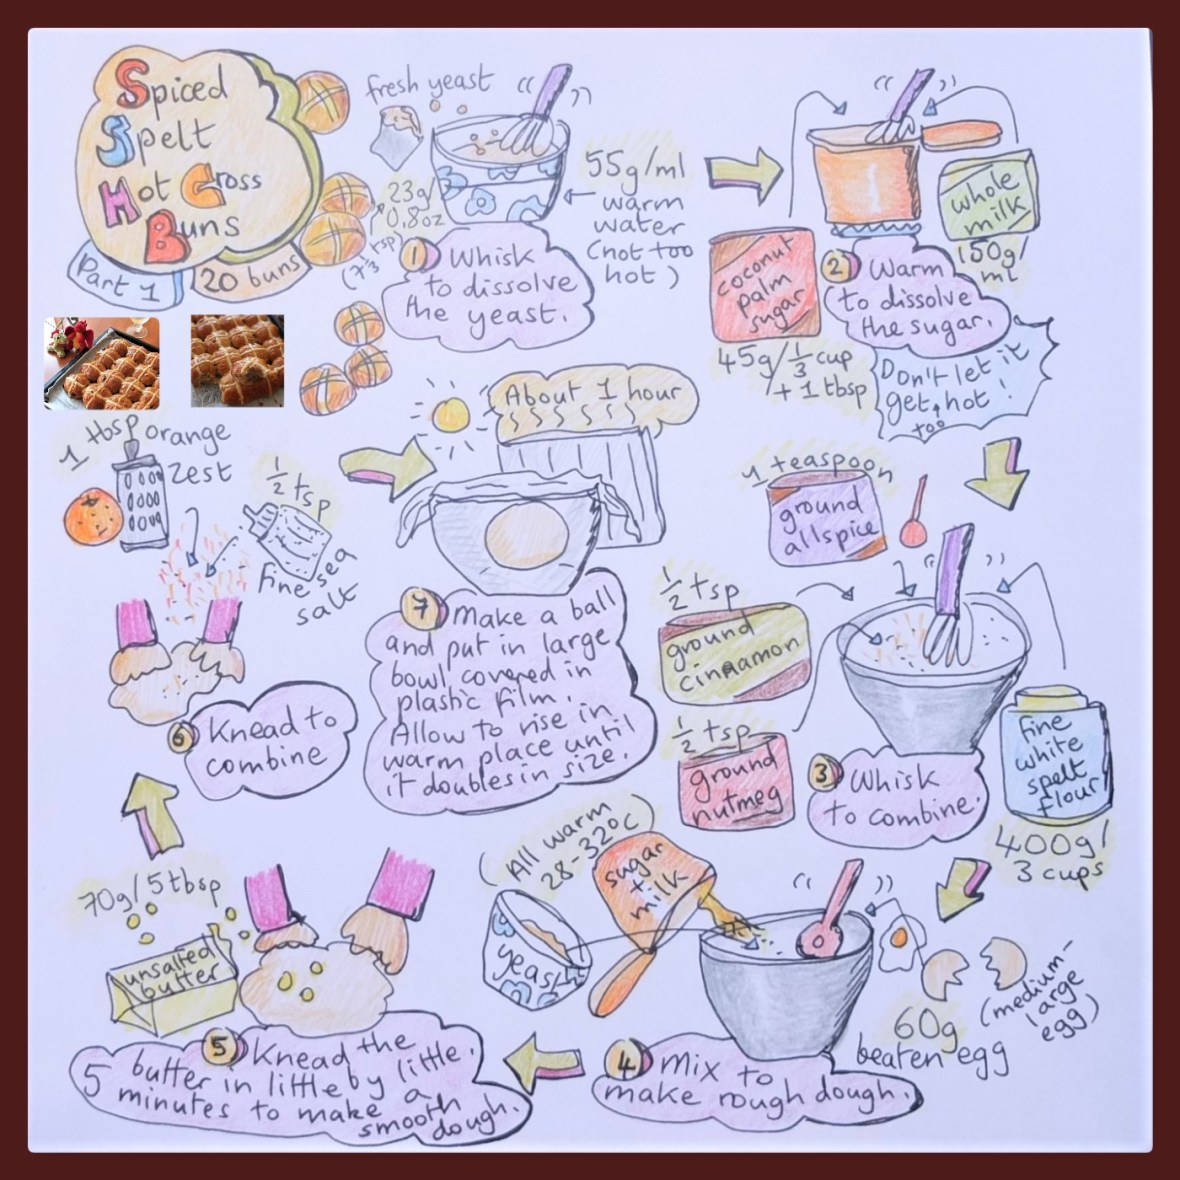 Spiced
Spelt
Hot Cross
Buns
Part 1
20 buns
fresh yeast
23g/
0.8oz
(7⅓ tsp)
55g/ml
warm
water
(not too
hot)
1 Whisk
to dissolve
the yeast.
whole
milk
150g/
ml
coconut
palm
sugar
45g/⅓ cup
+ 1 tbsp
2 Warm
to dissolve
the sugar.
Don't let it
get too hot!
1 teaspoon
ground
allspice
½ tsp
ground
cinnamon
½ tsp
ground
nutmeg
fine
white
spelt
flour
400g/
3 cups
3 Whisk
to combine.
All warm
28-32°C
sugar
+
milk
yeast
60g
beaten egg
(medium-
large
egg)
4 Mix to
make rough dough.
70g/5 tbsp
unsalted
butter
5 Knead the
butter in little by little.
5 minutes to make a
smooth
dough.
1 tbsp orange
zest
½ tsp
fine sea
salt
6 Knead to
combine
About 1 hour
7 Make a ball
and put in large
bowl covered in
plastic film.
Allow to rise in
warm place until
it doubles in size.